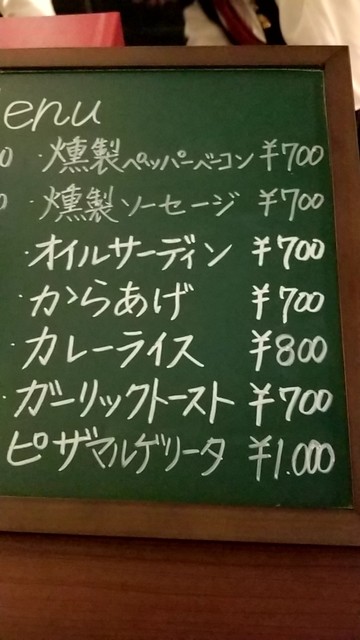 enu
0 ・燻製ペッパーベーコン ¥700
0 ・燻製ソーセージ ¥700
・オイルサーディン ¥700
・からあげ ¥700
・カレーライス ¥800
・ガーリックトースト ¥700
ピザマルゲリータ ¥1.000